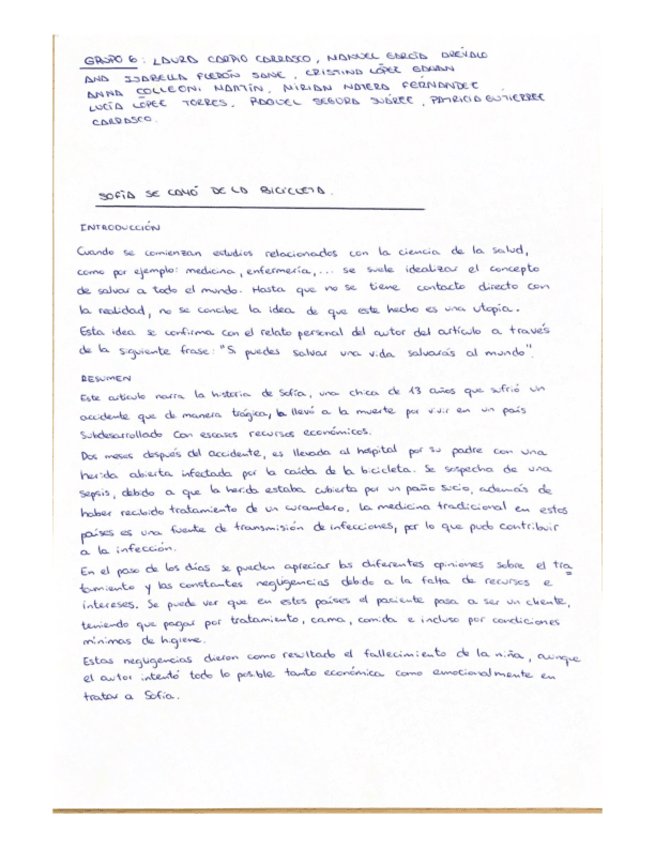 GRUPO 6: LAURA CARPIO CARRASCO, MANUEL GARCÍA ARÉVALO
ANA ISABELLA PLEDÓN SANE, CRISTINA LÓPEZ
ANNA COLLEONI MARTÍN, MIRIAN NATERA FERNANDEZ
LUCÍA LÓPEZ TORRES, RAQUEL SEGURA SUÁREZ, PATRICIA GUTIERREZ
CARRASCO.
SOFÍA SE CAYÓ DE LA BICICLETA.
INTRODUCCIÓN
Cuando se comienzan estudios relacionados con la ciencia de la salud,
como por ejemplo: medicina, enfermería,... se suele idealizar el concepto
de salvar a todo el mundo. Hasta que no se tiene contacto directo con
la realidad, no se concibe la idea de que este hecho es una utopía.
Esta idea se confirma con el relato personal del autor del artículo a través
de la siguiente frase: "Si puedes salvar una vida salvarás al mundo".
RESUMEN
Este artículo narra la historia de Sofía, una chica de 13 años que sufrió un
accidente que de manera trágica, la llevó a la muerte por vivir en un país
subdesarrollado con escasos recursos económicos.
Dos meses después del accidente, es llevada al hospital por su padre con una
herida abierta infectada por la caída de la bicicleta. Se sospecha de una
sepsis, debido a que la herida estaba cubierta por un paño sucio, además de
haber recibido tratamiento de un curandero. La medicina tradicional en estos
países es una fuente de transmisión de infecciones, por lo que pudo contribuir
a la infección.
En el paso de los días se pueden apreciar las diferentes opiniones sobre el tra
tamiento y las constantes negligencias debido a la falta de recursos e
intereses. Se puede ver que en estos países el paciente pasa a ser un cliente,
teniendo que pagar por tratamiento, cama, comida e incluso por condiciones
mínimas de higiene.
Estas negligencias dieron como resultado el fallecimiento de la niña, aunque
el autor intentó todo lo posible tanto económica como emocionalmente en
tratar a Sofía.